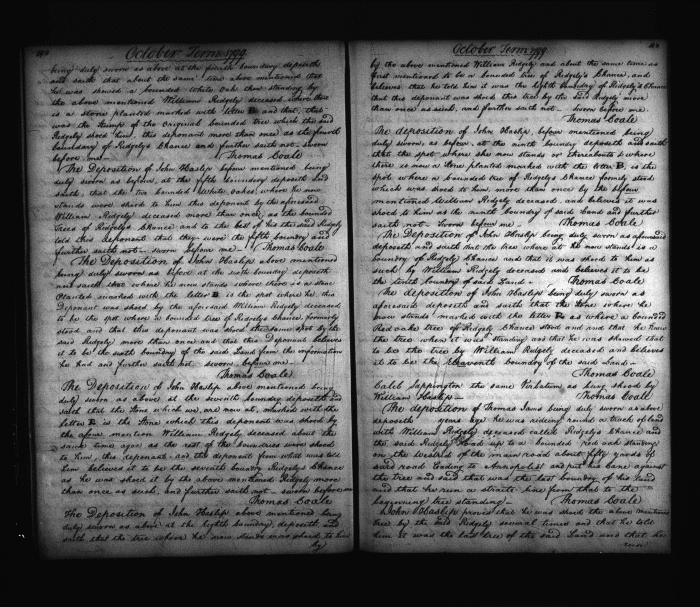 October Term 1799
being duly sworn as above at the fourth boundary deposeth
and saith that about the same time above mentioned that
he was shewed a bounded White oak then standing by
the above mentioned William Ridgely deceased where there
is a stone planted marked with letter B and that, that
was the stump of the Original bounded tree which the said
Ridgely shoed him, this deponent more than once as the fourth
boundary of Ridgely's Chance and further saith not. sworn
before me — Thomas Coale
The Deposition of John Haslip before mentioned being
duly sworn as before, at the fifth boundary deposeth and
saith, that the two bounded White oakes where he now
stands were shoed to him this deponent by the aforesaid
William Ridgely deceased more than once, as the bounded
Trees of Ridgelys Chance, and to the best of his the said Ridgely
told this deponent that they were the fifth boundary and
further saith not. Sworn before me. Thomas Coale
The Deposition of John Haslip above mentioned
being duly sworn as before at the sixth boundary deposeth
and saith that where he now stands where there is a stone
Planted marked with the letter B is the spot where he this
Deponant was shoed by the aforesaid William Ridgely deceased
to be the spot where a bounded tree of Ridgelys Chance, formerly
stood and that this deponant was shoed the same spot by the
said Ridgely more than once and that this Deponant believes
it to be the sixth boundary of the said Land from the information
he had and further saith not. sworn before me —
Thomas Coale
The Deposition of John Haslip above mentioned being
duly sworn as above at the seventh boundary deposeth and
saith that the stone which we are now at, marked with the
letter B is the stone which this deponent was shoed by
the afore mention William Ridgely deceased about the
same time ago as the rest of the boundries were shoed
to him, this deponant and the deponent from what was told
him believes it to be the seventh boundry Ridgelys Chance
as he was shoed it by the above mentioned Ridgely more
than once as such, and further saith not sworn before me
Thomas Coale
The Deposition of John Haslip above mentioned being
duly sworn as above at the eighth boundry, deposeth and
saith that the tree where he now stands was shoed to him
by
October Term 1799
by the above mentioned William Ridgely and about the same time as
first mentioned to be a bounded tree of Ridgely's Chance, and
believes that he told him it was the eighth boundry of Ridgely's Chance
that this deponant was shoed this tree by the said Ridgely more
than once as such, and further saith not. Sworn before me
Thomas Coale
The deposition of John Haslip, before mentioned being
duly sworn, as before, at the ninth boundry deposeth and saith
that the spot where she now stands or thereabouts & where
there is now a stone planted marked with the letter B, is the
spot where a bounded tree of Ridgelys Chance formly stood
which was shoed to him more than once by the before
mentioned William Ridgely deceased, and believes it was
shoed to him as the ninth boundry of said Land and further
saith not. Sworn before me Thomas Coale
The Deposition of John Haslip being duly sworn as aforesaid
deposeth and saith that the tree where at he now stands is a
boundry of Ridgelys Chance and that it was shoed to him as
such by William Ridgely deceased and believes it to be
the tenth boundry of said Land. Thomas Coale
The deposition of John Haslip being duly sworn as
aforesaid deposeth and saith that the stone where he
now stands marked with the letter B is where a bounded
Red oake tree of Ridgely Chance stood and that he knew
the tree when it was standing and that he was shewed that
to be the tree by William Ridgely deceased and believes
it to be the eleaventh boundry of the said Land —
Thomas Coale
Caleb Sappington the same Variation as being shoed by
William Haslip — Thomas Coale
The deposition of Thomas Iams being duly sworn as above
deposeth years ago he was riding round a tract of land
with William Ridgely deceased called Ridgelys Chance and
the said Ridgely Road up to a bounded red oak standing
on the west side of the main road about fifty yards of
said road leading to Annapolis and put his Cane against
the tree and said that was the last boundry of his Land
and that he run a straite line from that to the
beginning tree standing. Thomas Coale
John Haslip proves that he was shoed the above mentioned
tree by the said Ridgely several times and that he told
him it was the last tree of the said Land and that he